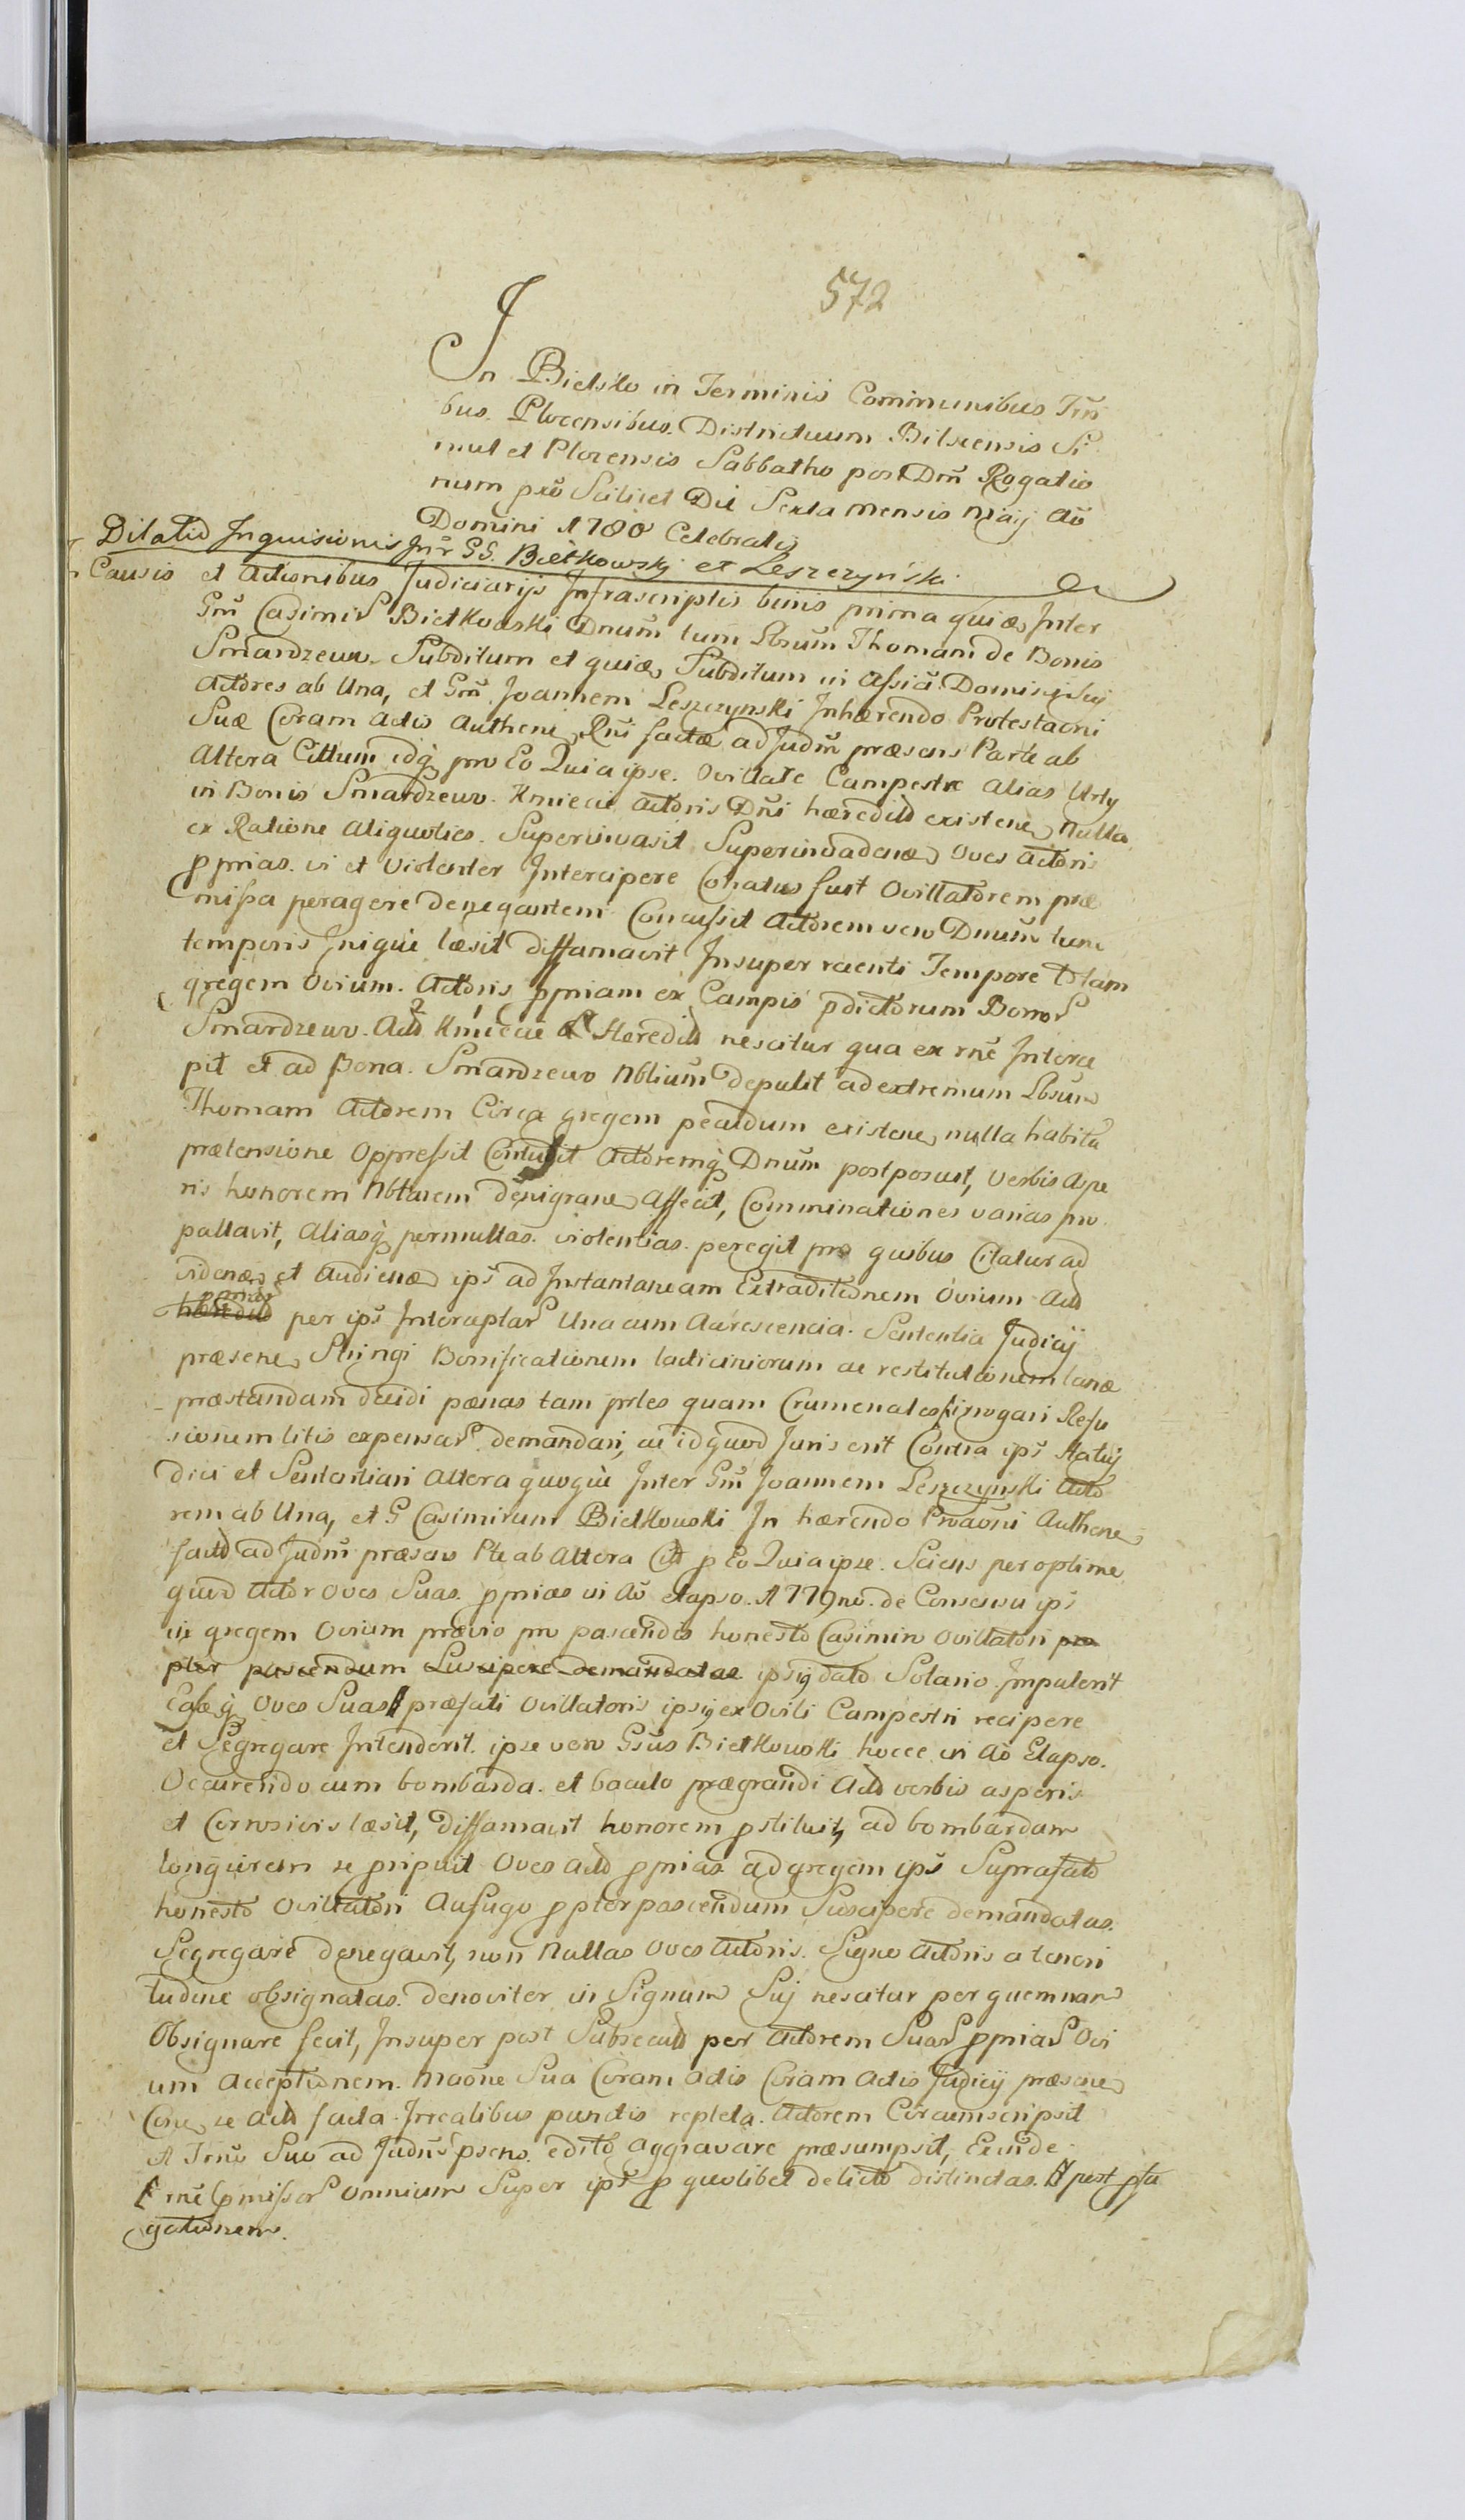 572
In Bielsko in Terminis Communibus Trri
bus. Plocensibus. Districtuum Bilscensis Si
mul et Plocensis Sabbatho post Dm̃ Rogatio
num pro Scilicet Die Sexta Mensis Maij Ao
Domini 1780 Celebratis
Dilatio Inquisionis Inr GG. Biełkowskj et Leszczyński
Causis et Actionibus Judiciarijs Infrascriptis binis prima quidē Inter
Gm̃ Casimir Biełkowski Dnum̃ tum Lbsum̃ Thomam de Bonis
Smardzewo Subditum et quidē Subditum in Assiã Domini Suj
Actōres ab Una, et Gm̃ Joannem Leszczynski Inhærendo Protestaōni
Suæ Coram Actis Authenẽ Rñi factæ ad Judm̃ præsens Parte ab
Altera Cittum idq pro Eo Quia ipse. Ovillate Campestre alias Urly
in Bonis Smardzewo. Kmiecie Actōris Dñi hæredittō existenẽ Nulla
ex Ratione Aliquoties. Supervivasit Superindadenẽ Oves Actōris
ppriãs. vi et Violenter Intercipere Conatus fuit Ovillatōrem præ
missa peragere denegantem Concussit Actōrem vero Dnum̃ tunc
temporis Inique læsit diffamavit Insuper recenti Tempore totam
gregem Ovium. Actōris ppriam ex Campis pdictōrum Bonor
Smardzewo. Actō Kmiecie Hæredittō nescitur qua ex rñe Interce
pit et ad Bona. Smardzewo Nblium̃ depulit ad extremum Lbsum
Thomam Actōrem Circa gregem pecudum existenẽ nulla habita
prætensione Oppressit Contusit Actōremq Dnum̃ postposuit, verbis Aspe
ris honorem Nbtarem denigranẽ Affecit, Comminationes varias pro
pallavit, Aliasq permultas. violentias. peregit præ quibus Citatur ad
videndẽ et Audiendẽ ips ad Instantaneam Extraditiōnem Ovium Actō
per ips Interceptar Una cum Accrescencia. Sententia Judicij
præsenẽ Stringi Bonificationem lacticiniorum ac restitutionem lanæ
præstandam decidi pænas tam prles quam Crumenales irrogari Refu
sionem litis expensar demandari, ac id quod Juris erit Contra ips Statuj
dici et Sententiari Altera quoque Inter Gm̃ Joannem Leszczynski Actō
rem ab Una, et G Casimirum Biełkowski Inhærendo Ptaōni Authene
factō ad Judm̃ præsens Pte ab Altera Cittō p Eo Quia ipse. Sciens per optime
quod Actōr Oves Suas. pprias in Ao elapso. 1779no. de Consensu ips
in gregem Ovium prævio pro pascendis honestō Casimiro Ovillatōri pro
pter pascendum Suscipere demandatae ipsiq datō Solario Impulerit
Easq Oves Suas præfati Ovillatoris ipsiq ex Ovili Campestri recipere
et Segregare Intenderit. ipse vero Gsus Biełkowski hocce in Ao Elapso.
Occurendo cum bombarda. et baculo prægrandi Actō verbis asperis
et Corrosivis læsit, diffamavit honorem pstituit, ad bombardam
longiorem se pripuit Oves Actō pprias ad gregem ips Suprafatō
honestō Ovillatōri Aufugo ppter pascendum Suscipere demandatas.
Segregare denegavit, non Nullas Oves Actōris. Signo Actōris a teneri
tudine obsignatas. denoviter in Signum Suj nescitur per quemnam
Obsignare fecit, Insuper post Subsecutō per Actōrem Suar ppriar Ovi
um Acceptiōnem. Maõne Sua Coram actis Coram Actis Judicij præsenẽ
Conẽ se Actō facta Irrealibus punctis repleta. Actōrem Circumscripsit
A Trño Suo ad Judm̃ psens. editō aggravare præsumpsit, Exinde
rñe pmissor omnium Super ips p quolibet delictō distinctas. post psta
gatiōnem.